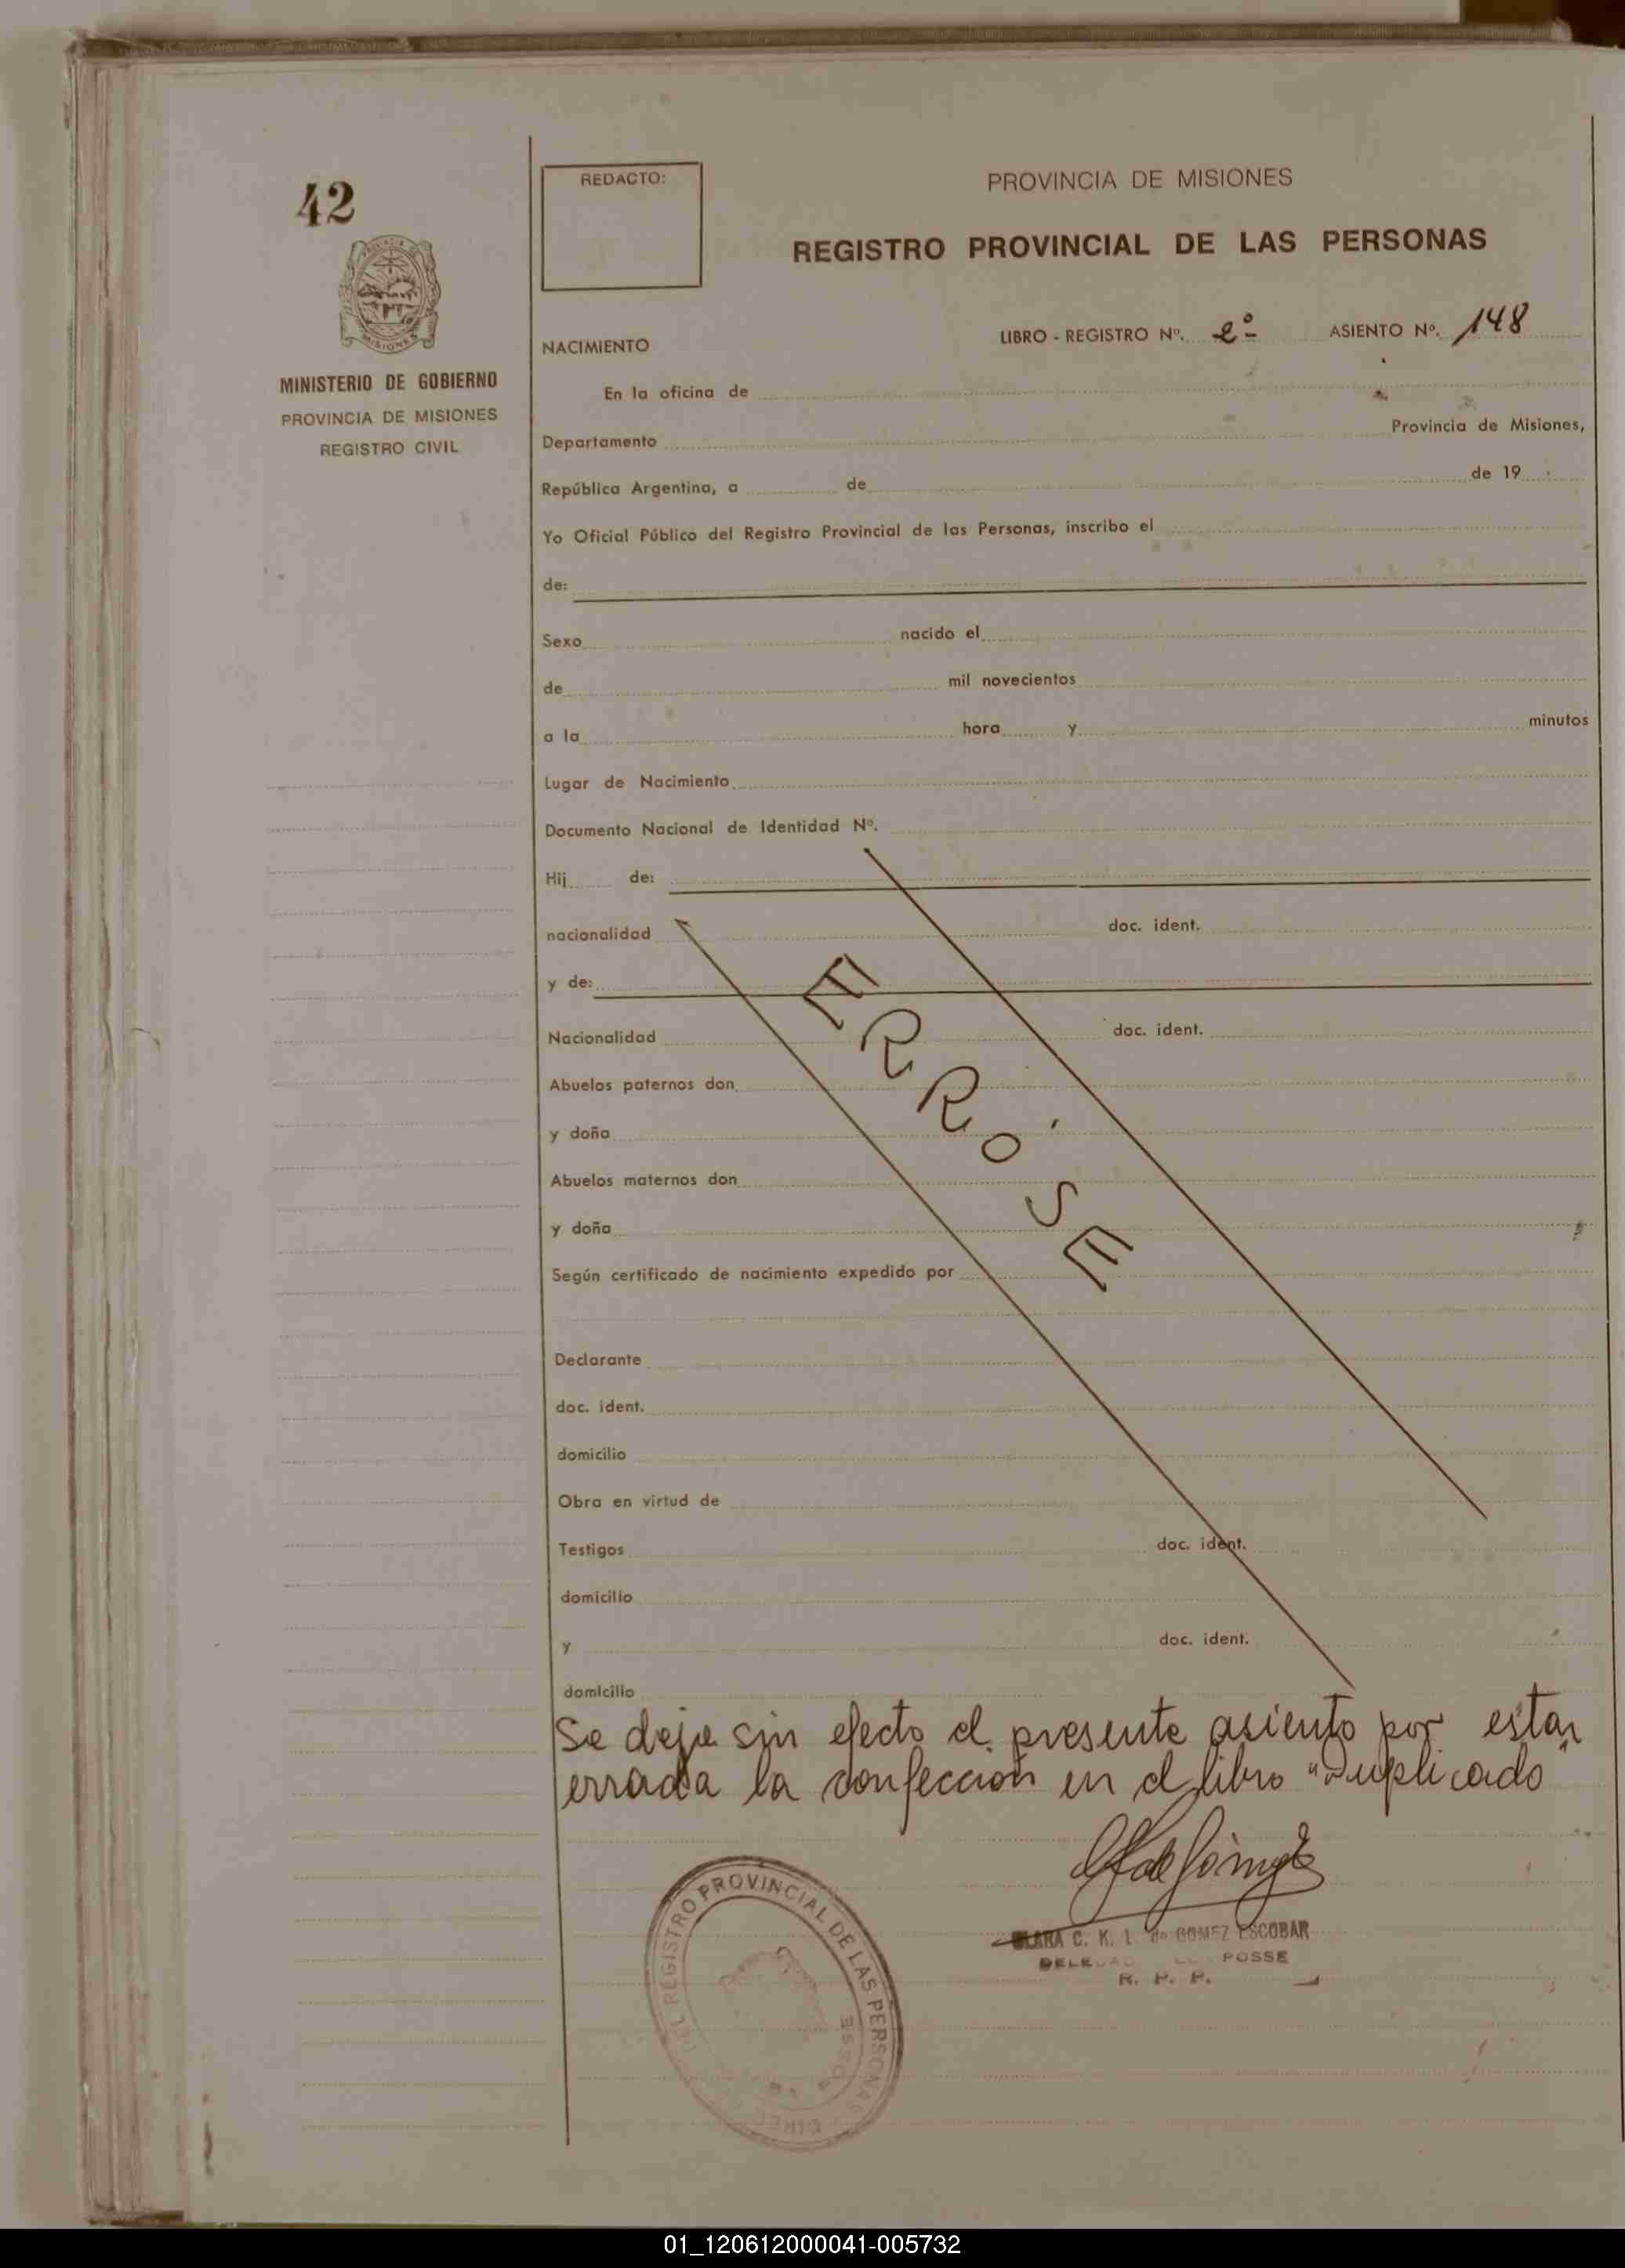 42
MISIONES
MINISTERIO DE GOBIERNO
PROVINCIA DE MISIONES
REGISTRO CIVIL
REDACTO:
PROVINCIA DE MISIONES
REGISTRO PROVINCIAL DE LAS PERSONAS
NACIMIENTO LIBRO - REGISTRO Nº. 2º ASIENTO Nº. 148
En la oficina de
Departamento Provincia de Misiones,
República Argentina, a de de 19
Yo Oficial Público del Registro Provincial de las Personas, inscribo el
de:
Sexo nacido el
de mil novecientos
a la hora y minutos
Lugar de Nacimiento
Documento Nacional de Identidad Nº.
Hij de:
nacionalidad doc. ident.
y de:
Nacionalidad doc. ident.
Abuelos paternos don
y doña
Abuelos maternos don
y doña
Según certificado de nacimiento expedido por
ERRÓSE
Declarante
doc. ident.
domicilio
Obra en virtud de
Testigos doc. ident.
domicilio
y doc. ident.
domicilio
Se deja sin efecto el presente asiento por estar
errada la confección en el libro "Duplicado"
CLARA C. K. I. de GOMEZ ESCOBAR
POSSE
R. P. P.
REGISTRO PROVINCIAL DE LAS PERSONAS
01_120612000041-005732